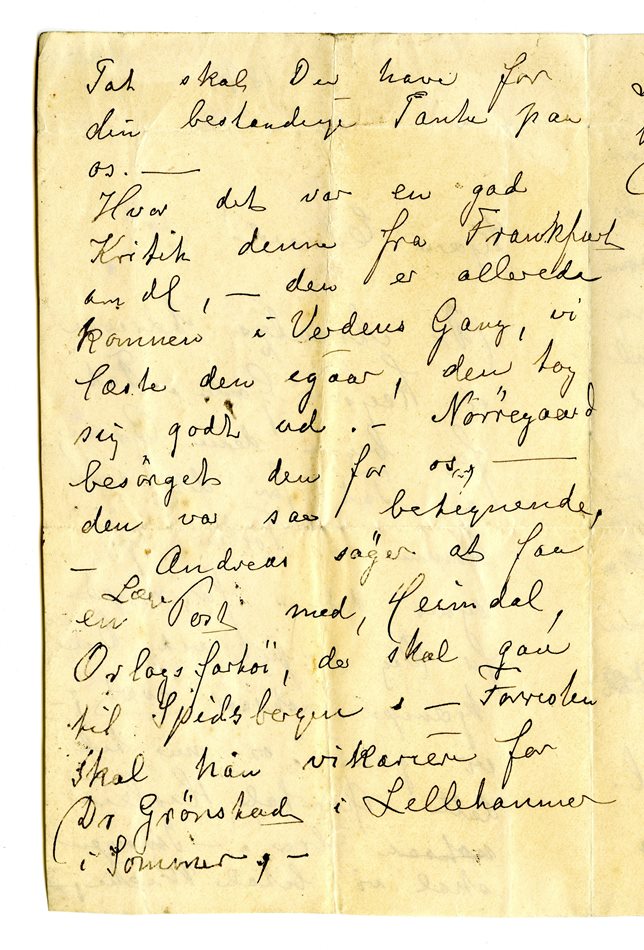 Tak skal Du have for
din bestandige Tanke paa
os. —
Hvor det var en god
Kritik denne fra Frankfurt
am M, — den er allerede
kommen i Verdens Gang, vi
læste den igaar, den tog
sig godt ud. — Nörregaard
besörget den for os, —
den var saa betegnende,
— Andreas söger at faa
en Læge Post med, Heimdal,
Orlogsfartöi, der skal gaa
til Spidsbergen, — Forresten
skal han vikariere for
Dr Grönstad i Lillehammer
i Sommer, —